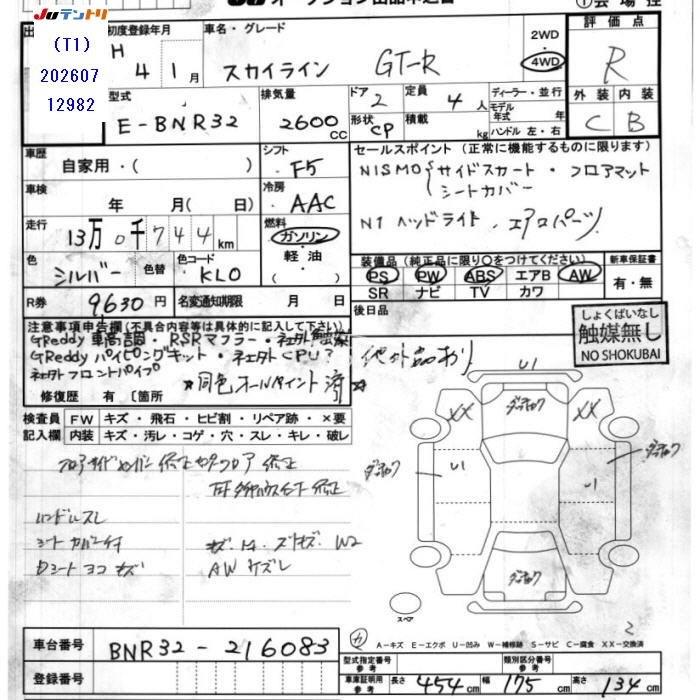 JUテントリ
(T1)
202607
12982
初度登録年月
H 4 1月
車名・グレード
スカイライン GT-R
2WD
4WD
評価点
R
外装 内装
C B
型式
E-BNR32
排気量
2600CC
ドア 2
形状 CP
定員 4人
積載 kg
ディーラー・並行
モデル年式 年式
ハンドル 左・右
車歴
自家用・( )
シフト
F5
車検
年 月( 日)
冷房
AAC
走行
13万0千744km
燃料
ガソリン
軽油
( )
色
シルバー
色替
色コード
KL0
R券 9630円
名変通知期限 月 日
セールスポイント(正常に機能するものに限ります)
NISMO サイドスカート・フロアマット
シートカバー
N1 ヘッドライト、エアロパーツ
装備品(純正品に限り〇をつけてください)
PS PW ABS エアB AW
SR ナビ TV カワ
新車保証書
有・無
後日品
しょくばいなし
触媒無し
NO SHOKUBAI
注意事項申告欄(不具合内容等は具体的に記入して下さい)
GReddy 車高調・RSRマフラー・社外触媒
GReddy パイピングキット・社外CPU?
社外フロントパイプ
他社外品あり
※同色オールペイント済※
修復歴 有 〔箇所
検査員 FW キズ・飛石・ヒビ割・リペア跡・×要
記入欄 内装 キズ・汚レ・コゲ・穴・スレ・キレ・破レ
ハンドルスレ
シートカバー付
Dシートヨコキズ
AWケズレ
U1
XX
XX
U1
スペア
車台番号
BNR32-216083
登録番号
A-キズ E-エクボ U-凹み W-補修跡 S-サビ C-腐食 XX-交換済
型式指定番号 参考
類別区分番号 参考
車庫証明用 参考 長さ 454cm 幅 175cm 高さ 134cm